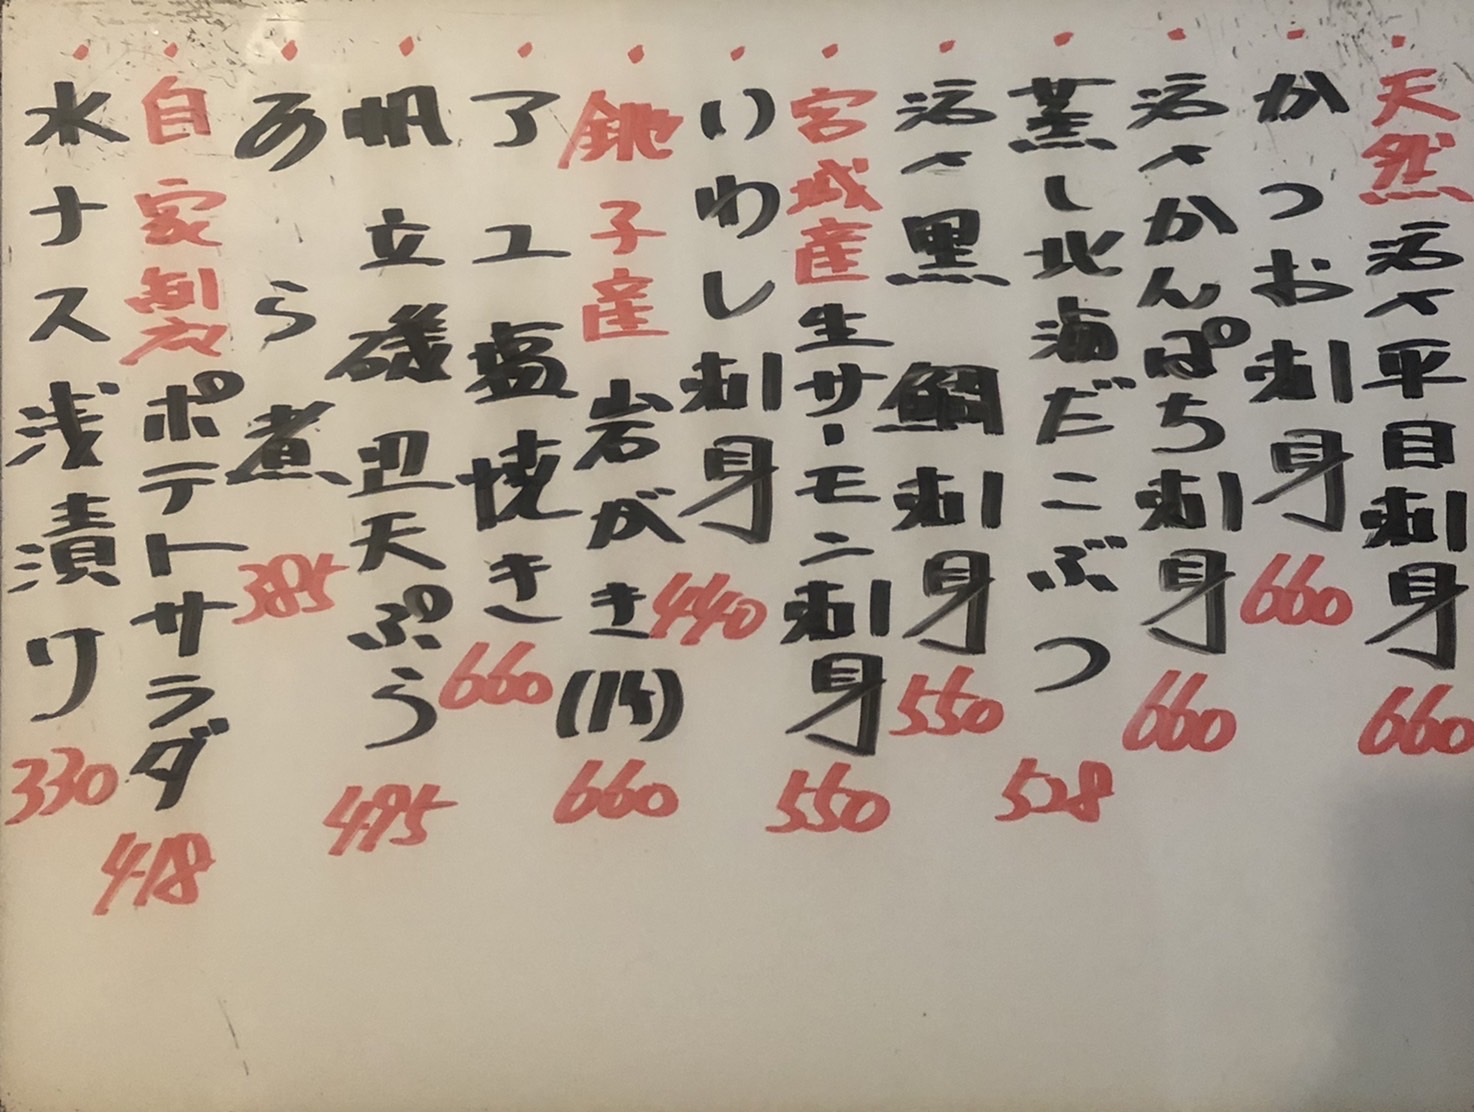 天然活〆平目刺身 660
かつお刺身 660
活〆かんぱち刺身 660
蒸し北海だこぶつ 528
活〆黒鯛刺身 550
宮城産生サーモン刺身 550
いわし刺身 440
銚子産岩がき(1ケ) 660
アユ塩焼き 660
帆立磯辺天ぷら 495
あら煮 385
自家製ポテトサラダ 418
水ナス浅漬ケ 330